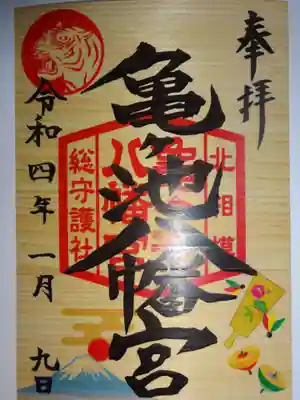 奉拝
北相模
亀ヶ池八幡宮
総守護社
令和四年 一月 九日